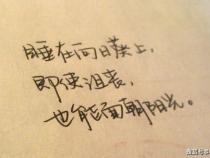 睡在向日葵上，
即使沮丧，
也能面朝阳光。
搜狐号@